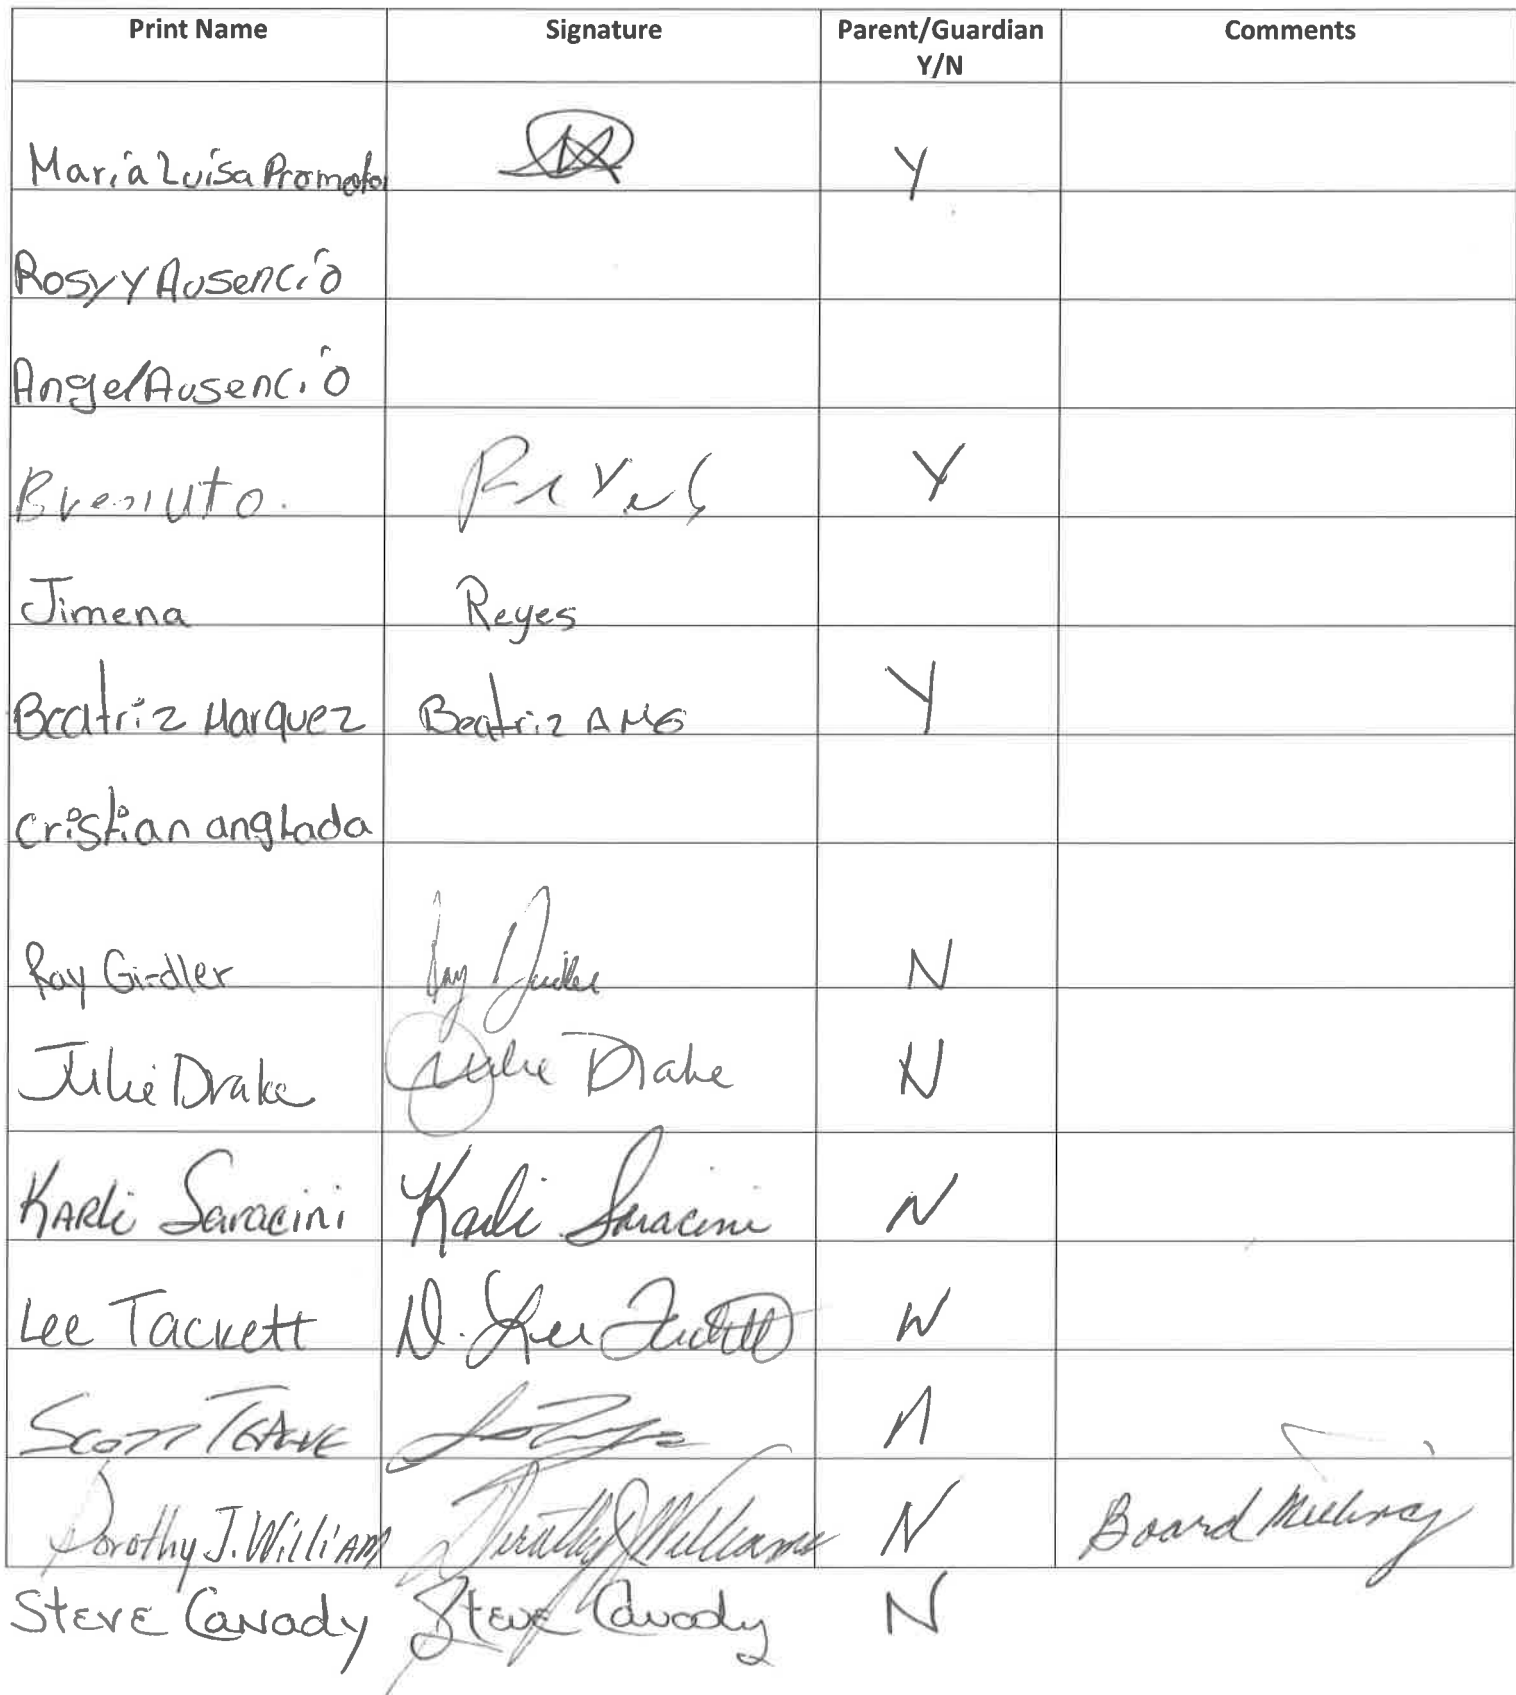 Print Name Signature Parent/Guardian Y/N Comments
María Luisa Promotor Y
Rosy Y Ausencio
Angel Ausencio
Y
Jimena Reyes
Beatriz Marquez Beatriz AMG Y
cristian anglada
Ray Girdler Ray Girdler N
Julie Drake Julie Drake N
KARli Saracini Karli Saracini N
Lee Tackett D. Lee Tackett N
SCOTT TEAGUE N
Dorothy J. William Dorothy J Williams N Board
STEVE Canady Steve Canady N